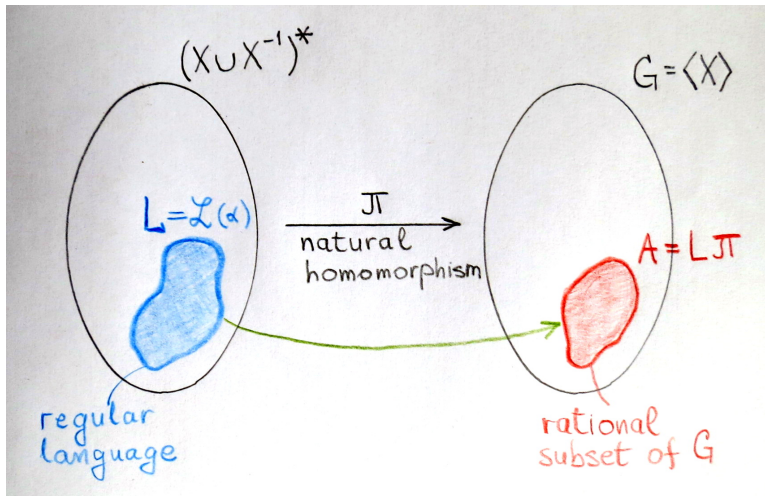 (X∪X⁻¹)*
G=⟨X⟩
L=ℒ(α)
π
natural
homomorphism
A=Lπ
regular
language
rational
subset of G